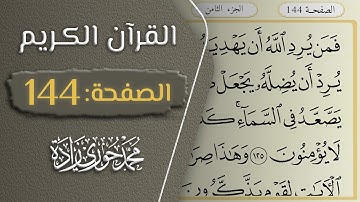 القرآن الكريم
الصفحة: 144
محمد حوري زادة
الصفحة 144
الجزء الثامن
فَمَن يُرِدِ ٱللَّهُ أَن يَهْدِيَهُ
يُرِدْ أَن يُضِلَّهُۥ يَجْعَلْ
يَصَّعَّدُ فِى ٱلسَّمَآءِ ۚ
لَا يُؤْمِنُونَ ١٢٥ وَهَٰذَا صِرَ
ٱلْءَايَٰتِ لِقَوْمٍ يَذَّكَّرُونَ